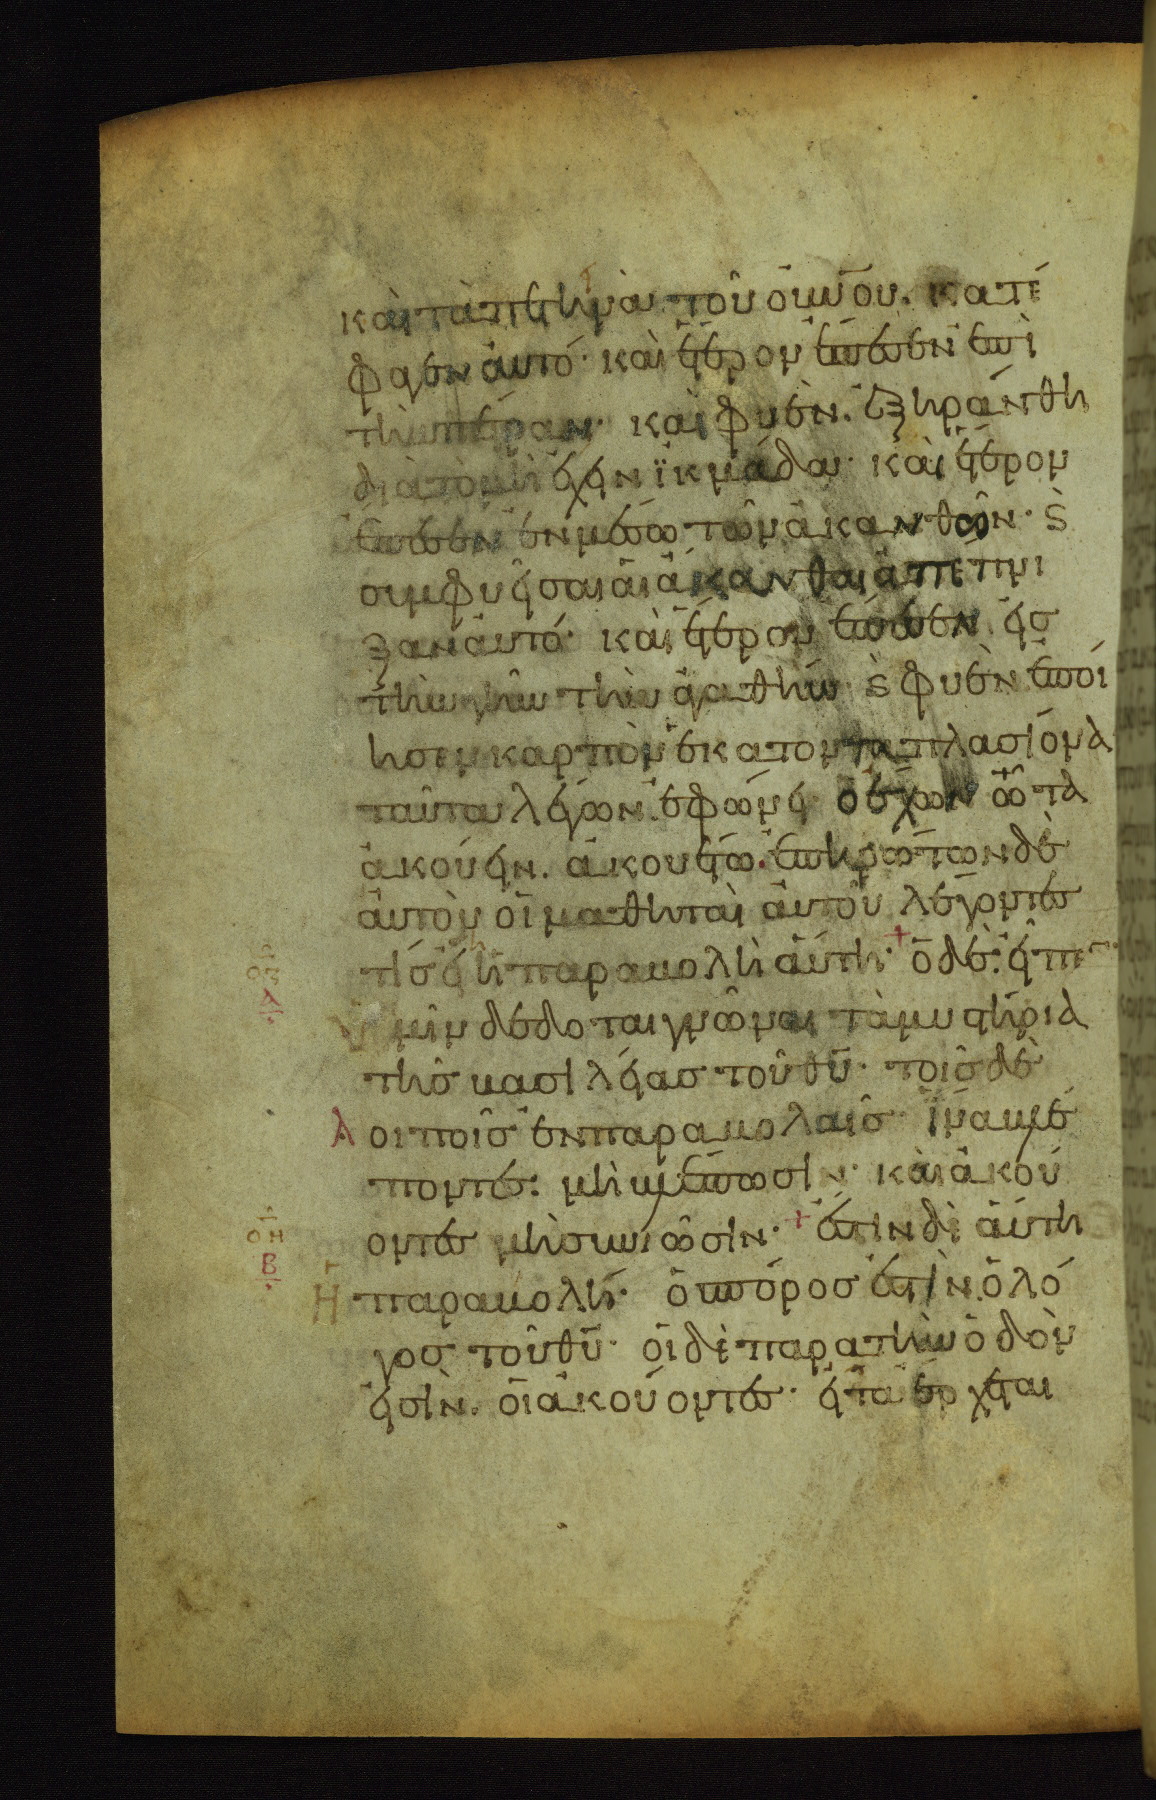 καὶ τὰ πετηνὰ τοῦ οὐ̅νοῦ. κατέ
φαγεν ἀυτό· καὶ ἕτερον ἔπεσεν ἐπὶ
τὴν πέτραν· καὶ φυὲν. ἐξηράνθη
διὰ τὸ μὴ ἔχειν ἰκμάδα· καὶ ἕτερον
ἔπεσεν ἐν μέσω τῶν ἀκανθῶν· ϗ
συμφυεῖσαι αἱ ἄκανθαι ἀπέπνι
ξαν ἀυτό· καὶ ἕτερον ἔπεσεν εἰσ
τὴν γῆν τὴν ἀγαθήν· ϗ φυὲν ἐποί
ησεν καρπὸν ἑκατονταπλασίονα
ταῦτα λέγων. ἐφώνει ὁ ἔχων ὦτα
ἀκούειν. ἀκουέτω. ἐπηρώτων δὲ
ἀυτὸν οἱ μαθηταὶ ἀυτοῦ λέγοντεσ
τίσ εἴη ἡ παραβολὴ ἀύτη· + ὁ δὲ· εἶπεν
ὑμῖν δέδοται γνῶναι τὰ μυστήρια
τῆσ βασιλείασ τοῦ θ̅υ̅· τοῖσ δὲ
λοιποῖσ ἐν παραβολαῖσ· ἵνα βλέ
ποντεσ· μὴ βλέπωσιν· καὶ ἀκού
οντεσ μὴ συνιῶσιν· + ἔστιν δὲ ἀύτη
ἡ παραβολή· ὁ σπόροσ ἐστὶν. ὁ λό
γοσ τοῦ θ̅υ̅· οἱ δὲ παρα τὴν ὁδὸν
εἰσὶν. οἱ ἀκούοντεσ· εἶτα ἔρχεται
ο̅η̅
Β